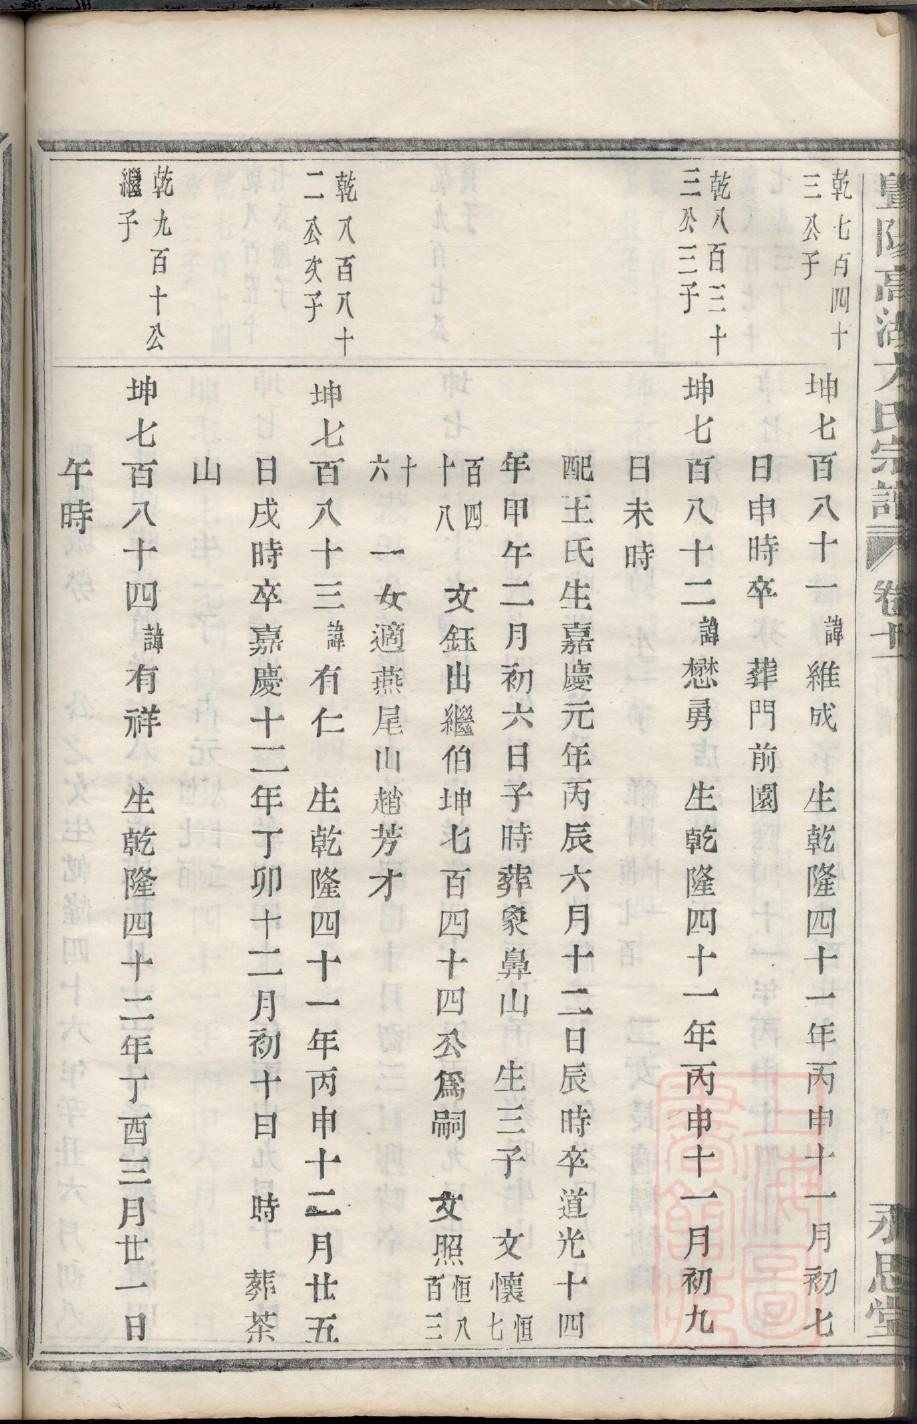 暨陽高湖方氏宗譜 卷十一 永思堂
乾七百四十三公子
坤七百八十一諱維成 生乾隆四十一年丙申十一月初七
日申時卒 葬門前園
乾八百三十三公三子
坤七百八十二諱懋勇 生乾隆四十一年丙申十一月初九
日未時
配王氏生嘉慶元年丙辰六月十二日辰時卒道光十四
年甲午二月初六日子時葬象鼻山 生三子 文懷恒七
百四十八 文鈺出繼伯坤七百四十四公爲嗣 文照恒八百三
十六 一女適燕尾山趙芳才
乾八百八十二公次子
坤七百八十三諱有仁 生乾隆四十一年丙申十二月廿五
日戌時卒嘉慶十二年丁卯十二月初十日 時 葬茶
山
乾九百十公繼子
坤七百八十四諱有祥 生乾隆四十二年丁酉三月廿一日
午時